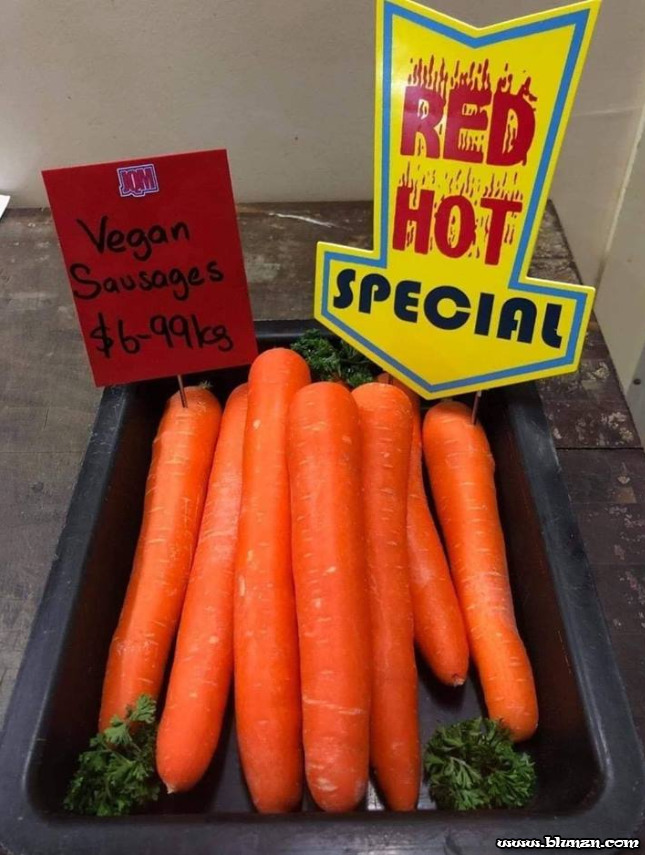 JQM
Vegan
Sausages
$6-99kg
RED
HOT
SPECIAL
www.blunzn.com